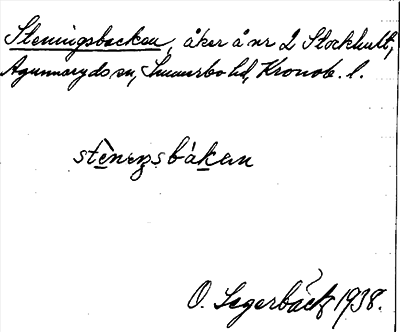 Steningsbacken, åker å nr 2 Stockhult,
Agunnaryds sn, Sunnerbo hd, Kronob. l.
stènıŋsbàkan
O. Segerbäck 1938.